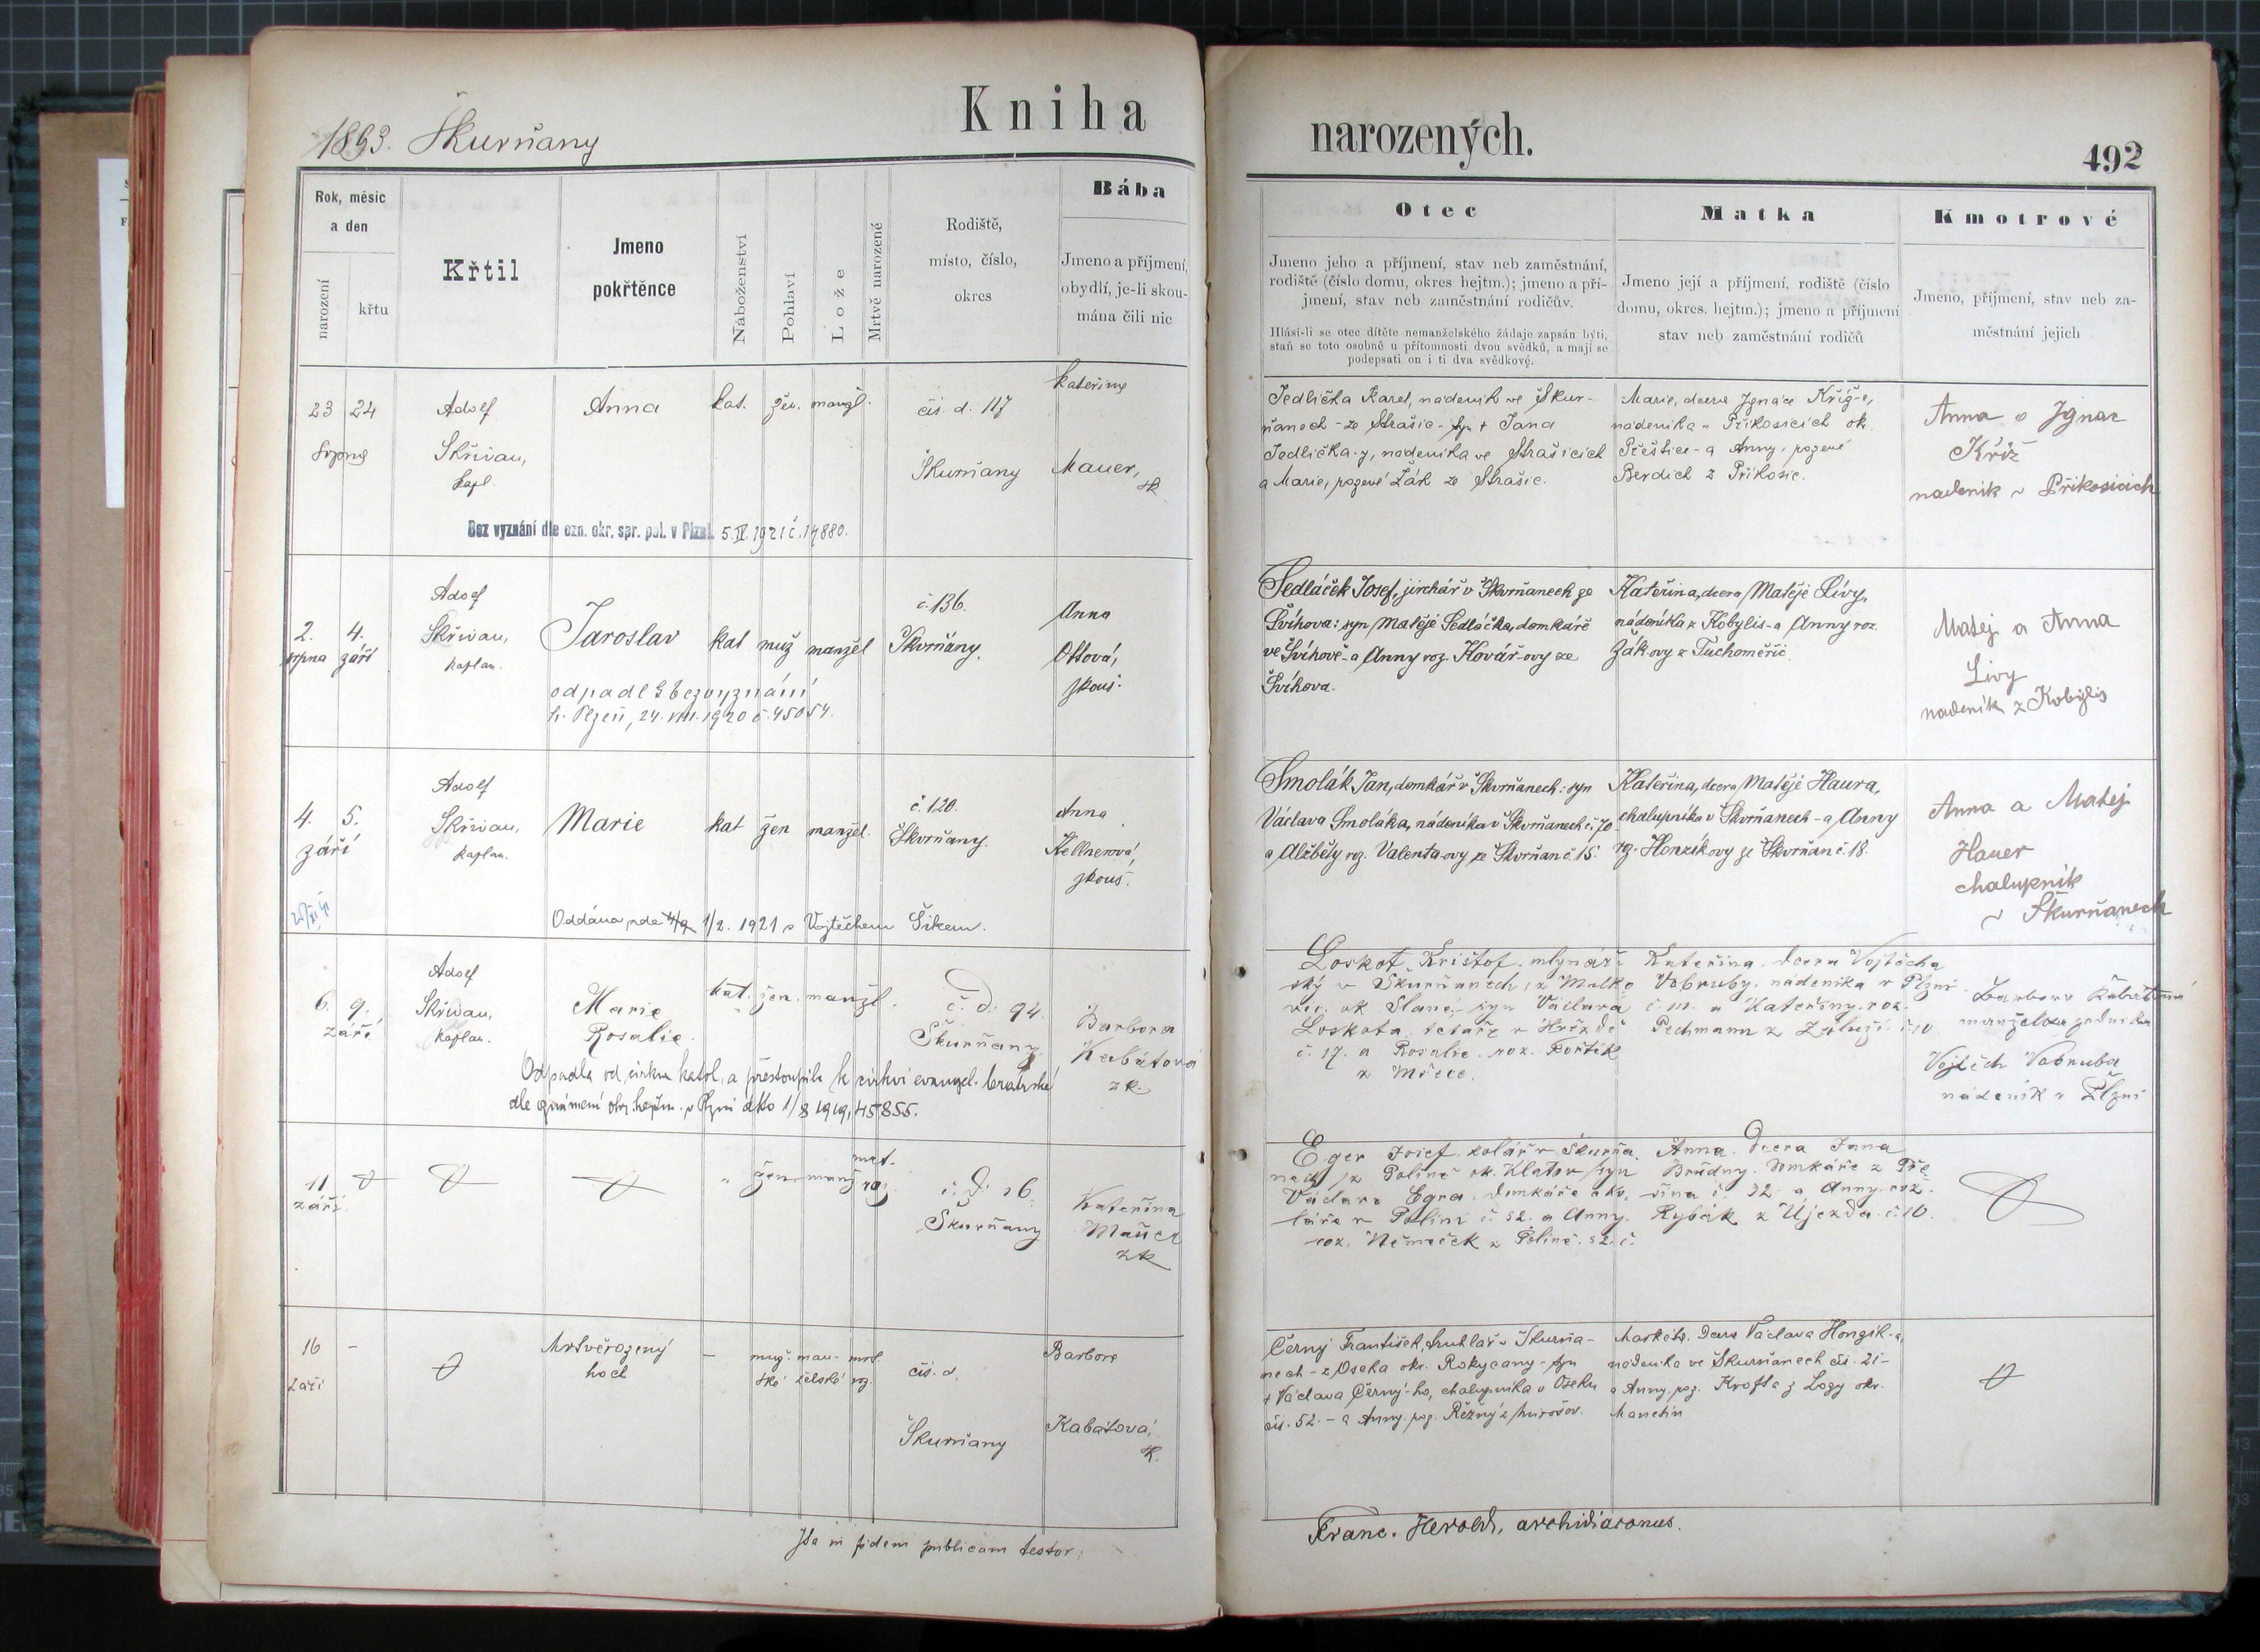 Kniha narozených.
1893. Škurňany
492
Rok, měsíc a den
narození
křtu
Křtil
Jmeno pokřtěnce
Náboženství
Pohlaví
Lože
Mrtvě narozené
Rodiště,
místo, číslo,
okres
Bába
Jmeno a příjmení,
obydlí, je-li skou-
mána čili nic
Otec
Jmeno jeho a příjmení, stav neb zaměstnání,
rodiště (číslo domu, okres. hejtm.); jmeno a pří-
jmení, stav neb zaměstnání rodičův.
Hlásí-li se otec dítěte nemanželského žádaje zapsán býti,
staň se toto osobně u přítomnosti dvou svědků, a mají se
podepsati on i ti dva svědkové.
Matka
Jmeno její a příjmení, rodiště (číslo
domu, okres. hejtm.); jmeno a příjmení
stav neb zaměstnání rodičů
Kmotrové
Jmeno, příjmení, stav neb za-
městnání jejich
23 24
srpna
Adolf
Skřivan,
kapl.
Anna
kat. žen. manžl.
čís. d. 117
Škurňany
Kateřina
Mauer,
zk
Bez vyznání dle ozn. okr. spr. pol. v Plzni. 5.IV.1921 č.14880.
Jedlička Karel, nádeník ve Škur-
ňanech - ze Strašic - syn + Jana
Jedlička-y, nádeníka ve Strašicích
a Marie, rozené Žák ze Strašic.
Marie, dcera Ignáce Kříž-e,
nádeníka v Příkosicích ok.
Přeštice - a Anny, rozené
Berdich z Příkosic.
Anna a Ignac
Kříž
nadenik v Příkosicich
2. 4.
srpna září
Adolf
Skřivan,
kaplan.
Jaroslav
kat muž manžel
č. 136.
Škvrňany.
Anna
Ottová,
skouš.
odpadl s bezvyznání
h. Plzeň, 24. VIII. 1920 č. 45054.
Sedláček Josef, jirchář v Škvrňanech ze
Švihova: syn Matěje Sedláčka, domkáře
ve Švihově - a Anny roz. Kovář-ovy ze
Švihova.
Kateřina, dcera Matěje Lívy,
nádeníka z Kobylis - a Anny roz.
Žák-ovy z Tuchoměřic.
Matej a Anna
Livy
nadenik z Kobylis
4. 5.
září
Adolf
Skřivan,
kaplan.
Marie
kat žen manžel.
č. 120.
Škvrňany.
Anna
Kellnerová,
skouš.
Oddána 1/2. 1921 s Vojtěchem Šikem.
Smolák Jan, domkář v Škvrňanech: syn
Václava Smoláka, nádeníka v Škvrňanech č. 70
a Alžběty roz. Valenta-ovy ze Škvrňan č. 15.
Kateřina, dcera Matěje Haura,
chalupníka v Škvrňanech - a Anny
roz. Honzík-ovy ze Škvrňan č. 18.
Anna a Matej
Hauer
chalupnik
v Škurňanech
6. 9.
září
Adolf
Skřivan,
kaplan.
Marie
Rosalie.
kat. žen. manžl.
č. d. 94.
Škurňany
Barbora
Kabátová
zk.
Odpadla od církve katol. a přestoupila k církvi evangel. bratrské
dle oznámení okr. hejtm. v Plzni dto 1/8 1919, 45855.
Loskot Krištof, mlynář-
ský v Škurňanech z
ok. Slané, syn Václava
Loskota,
č. 17. a Rosalie. roz. Fořtík
z
Kateřina. dcera Vojtěcha
Vobruby, nádeníka v Plzni
a Kateřiny. roz.
Pechmann z Zálužί č 10
Barbora Kabátová
manželka
Vojtěch Vobruba
nádeník v Plzni
11
září
" žen. manž mrt.
roz.
č. d. 26.
Škurňany
Kateřina
Mauer
zk
Eger Josef, kolář v Škurňa
nech z Polině ok. Klatov syn
Václava Egra. domkáře a ko-
láře v Polini č. 52. a Anny.
roz. Němeček z Polině. 52. č.
Anna. Dcera Jana
Brůdny. domkáře z Pře
šína č. 32. a Anny. roz.
Rybák z Újezda. č. 10.
16
září
-
Mrtvěrozený
hoch
- muž- man- mrt.
ské želské roz.
čís. d.
Škurňany
Barbora
Kabátová,
zk.
Černý František, truhlář v Škurňa-
nech - z Oseka okr. Rokycany - syn
+ Václava Černý-ho, chalupníka v Oseku
čís. 52. - a Anny. roz. Řežný z Mirošov.
Markéta. Dcera Václava Honzík-a,
nádeníka ve Škurňanech čís. 21 -
a Anny. roz. Krofta z Lozy okr.
Manetín
Ita in fidem publicam testor:
Franc. Herold, archidiaconus.